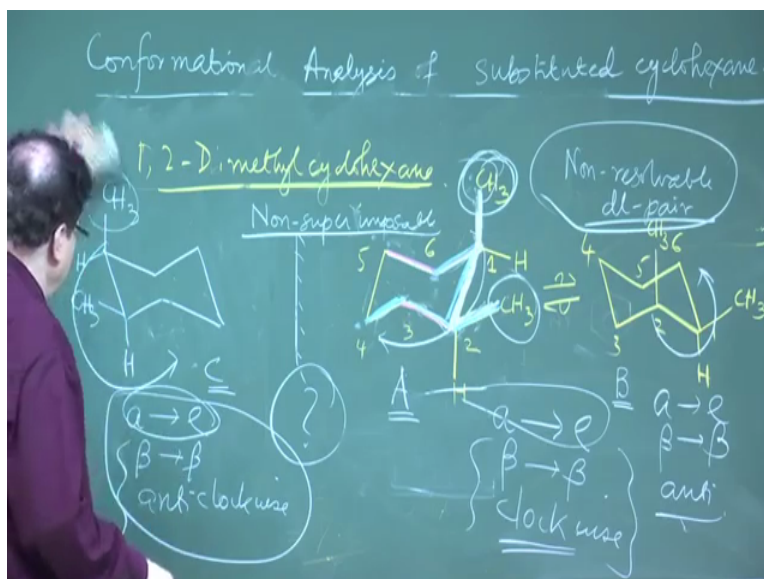 Conformational Analysis of substituted cyclohexane
1,2-Dimethylcyclohexane.
Non-superimposable
Non-resolvable
dl-pair
CH3
H
CH3
H
C
a → e
β → β
anti-clockwise
?
CH3
5
6
1
H
CH3
4
3
2
H
A
a → e
β → β
clockwise
CH3
4
5
6
3
2
CH3
H
B
a → e
β → β
anti